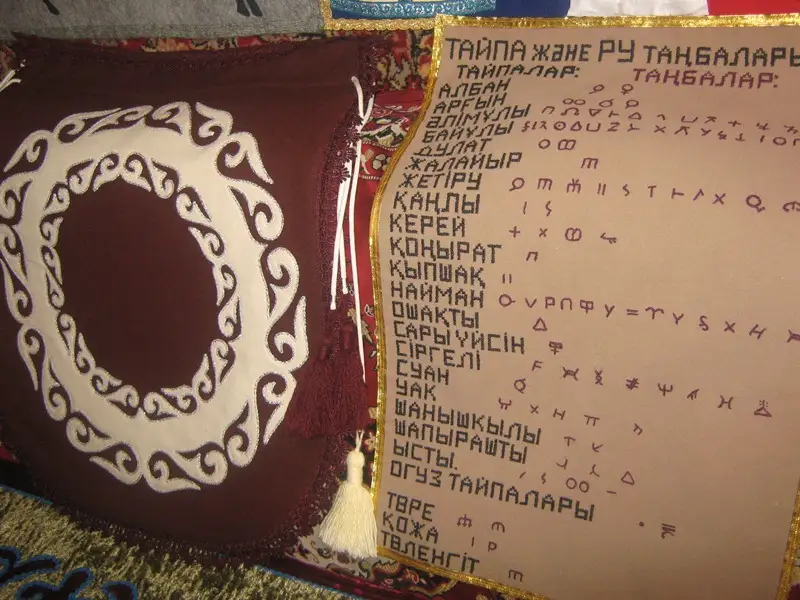 ТАЙПА және РУ ТАҢБАЛАРЫ
ТАЙПАЛАР: ТАҢБАЛАР:
АЛБАН
АРҒЫН
ӘЛІМҰЛЫ
БАЙҰЛЫ
ДУЛАТ
ЖАЛАЙЫР
ЖЕТІРУ
ҚАҢЛЫ
КЕРЕЙ
ҚОҢЫРАТ
ҚЫПШАҚ
НАЙМАН
ОШАҚТЫ
САРЫ ҮЙСІН
СІРГЕЛІ
СУАН
УАК
ШАНЫШКЫЛЫ
ШАПЫРАШТЫ
ЫСТЫ.
ОГУЗ ТАЙПАЛАРЫ
ТӨРЕ
ҚОЖА
ТӨЛЕНГІТ